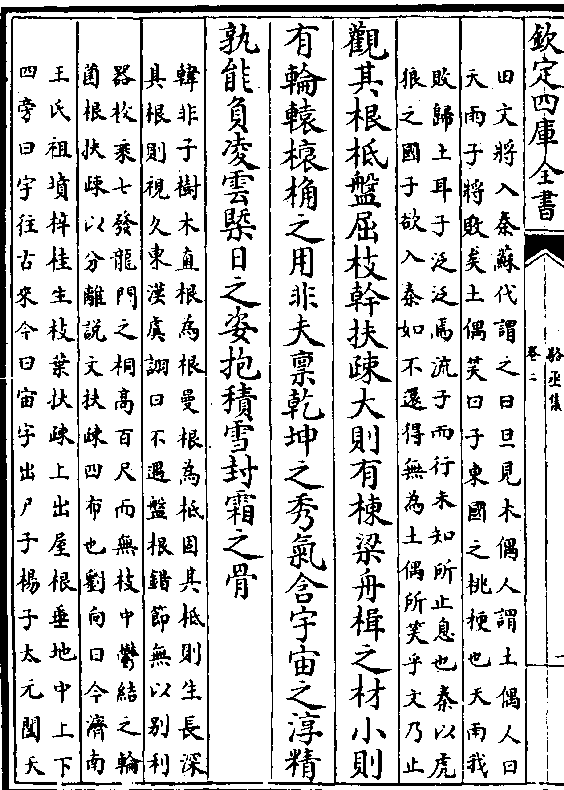 欽定四庫全書
駱丞集
卷二
田文將入秦蘇代謂之曰旦見木偶人謂土偶人曰
天雨子將敗矣土偶笑曰子東國之桃梗也天雨我
敗歸土耳子泛泛焉流子而行未知所止息也秦以虎
狼之國子欲入秦如不還得無為土偶所笑乎文乃止
觀其根柢盤屈枝幹扶疎大則有棟梁舟楫之材小則
有輪轅榱桷之用非夫禀乾坤之秀氣含宇宙之淳精
孰能負凌雲槩日之姿抱積雪封霜之骨
韓非子樹木直根為根曼根為柢固其柢則生長深
其根則視久東漢虞詡曰不遇盤根錯節無以别利
器枚乘七發龍門之桐高百尺而無枝中鬱結之輪
菌根扶疎以分離說文扶疎四布也劉向曰今濟南
王氏祖墳梓柱生枝葉扶疎上出屋根垂地中上下
四旁曰宇往古來今曰宙字出尸子楊子太元闔天